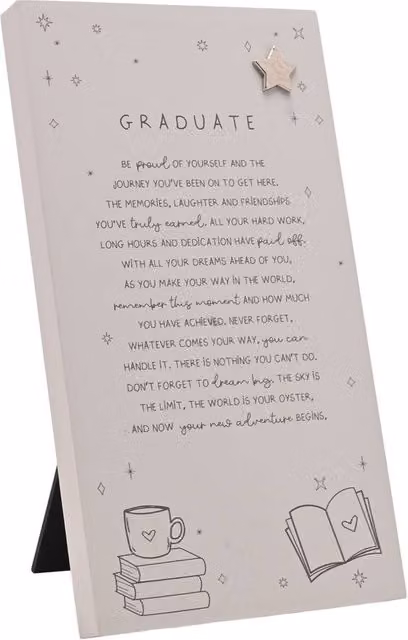 GRADUATE
BE proud OF YOURSELF AND THE
JOURNEY YOU'VE BEEN ON TO GET HERE.
THE MEMORIES, LAUGHTER AND FRIENDSHIPS
YOU'VE truly earned. ALL YOUR HARD WORK,
LONG HOURS AND DEDICATION HAVE paid off.
WITH ALL YOUR DREAMS AHEAD OF YOU,
AS YOU MAKE YOUR WAY IN THE WORLD,
remember this moment AND HOW MUCH
YOU HAVE ACHIEVED. NEVER FORGET,
WHATEVER COMES YOUR WAY, you can
HANDLE IT. THERE IS NOTHING YOU CAN'T DO.
DON'T FORGET TO dream big, THE SKY IS
THE LIMIT, THE WORLD IS YOUR OYSTER,
AND NOW your new adventure BEGINS.